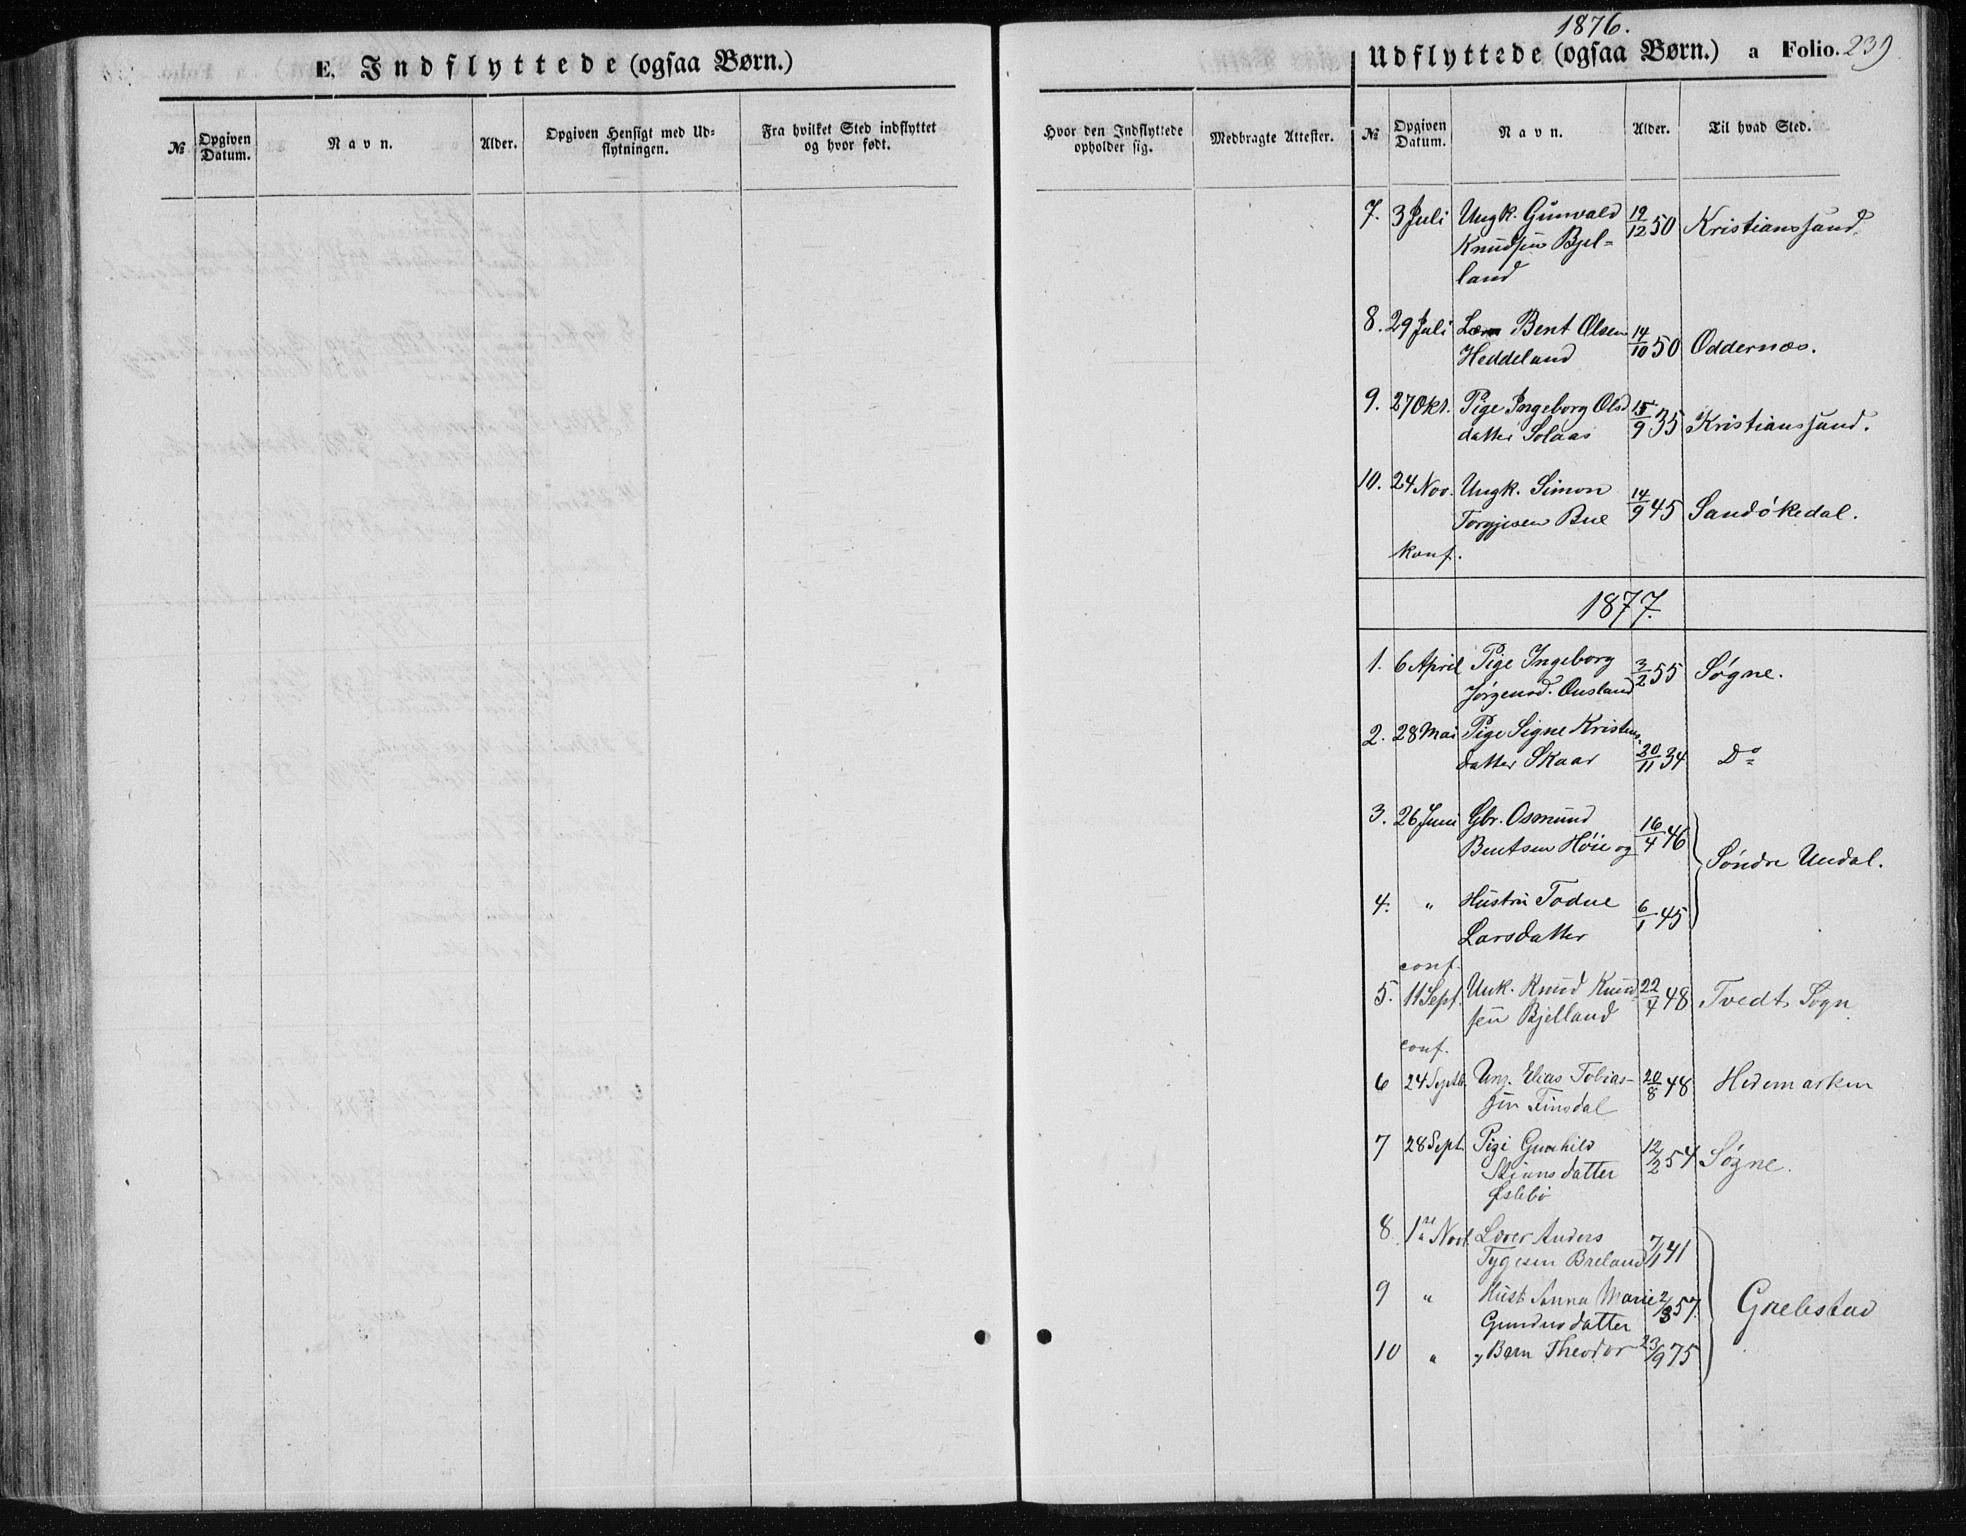 1876.
E. Indflyttede (ogsaa Børn.)
Udflyttede (ogsaa Børn.) a Folio. 239
№ Opgiven Datum. Navn. Alder. Opgiven Hensigt med Udflytningen. Fra hvilket Sted indflyttet og hvor født.
Hvor den Indflyttede opholder sig. Medbragte Attester. № Opgiven Datum. Navn. Alder. Til hvad Sted.
7. 3 Juli Ungk. Gunvald 19/12 50 Kristianssand.
Knudsen Bjel-
land
8. 29 Juli Bent Olsen 14/10 50 Oddernæs.
Heddeland
9. 27 Okt. Pige Ingeborg Ols 15/9 35 Kristianssand.
datter Solaas
10. 24 Nov. Ungk. Simon 14/9 45 Sandökedal.
Torgjesen Bue
konf.
1877.
1. 6 April Pige Ingeborg 3/2 55 Søgne.
Jørgensd. Ousland
2. 28 Mai Pige Signe Kristens
datter Skaar 20/11 34 Do
3. 26 Juni Gbr. Osmund 16/4 46
Bentsen Høie og
Søndre Undal.
4. " Hustru Todne 6/1 45
Larsdatter
conf.
5. 11 Sept. Unk. Knud Knud 22/4 48 Tvedt Sogn
sen Bjelland
conf.
6 24 Septb. Ung. Elias Tobias- 20/8 48 Hedemarken
sen Finsdal
7 28 Sept. Pige Gunhild 12/2 54 Søgne.
Stiansdatter
Øslebø
8. 1 Novb. Lærer Anders 7/1 41
Tygesen Breland
9 " Hust. Anna Marie 2/8 57.
Gundersdatter
Grebstad
10 " Barn Theodor 23/9 75